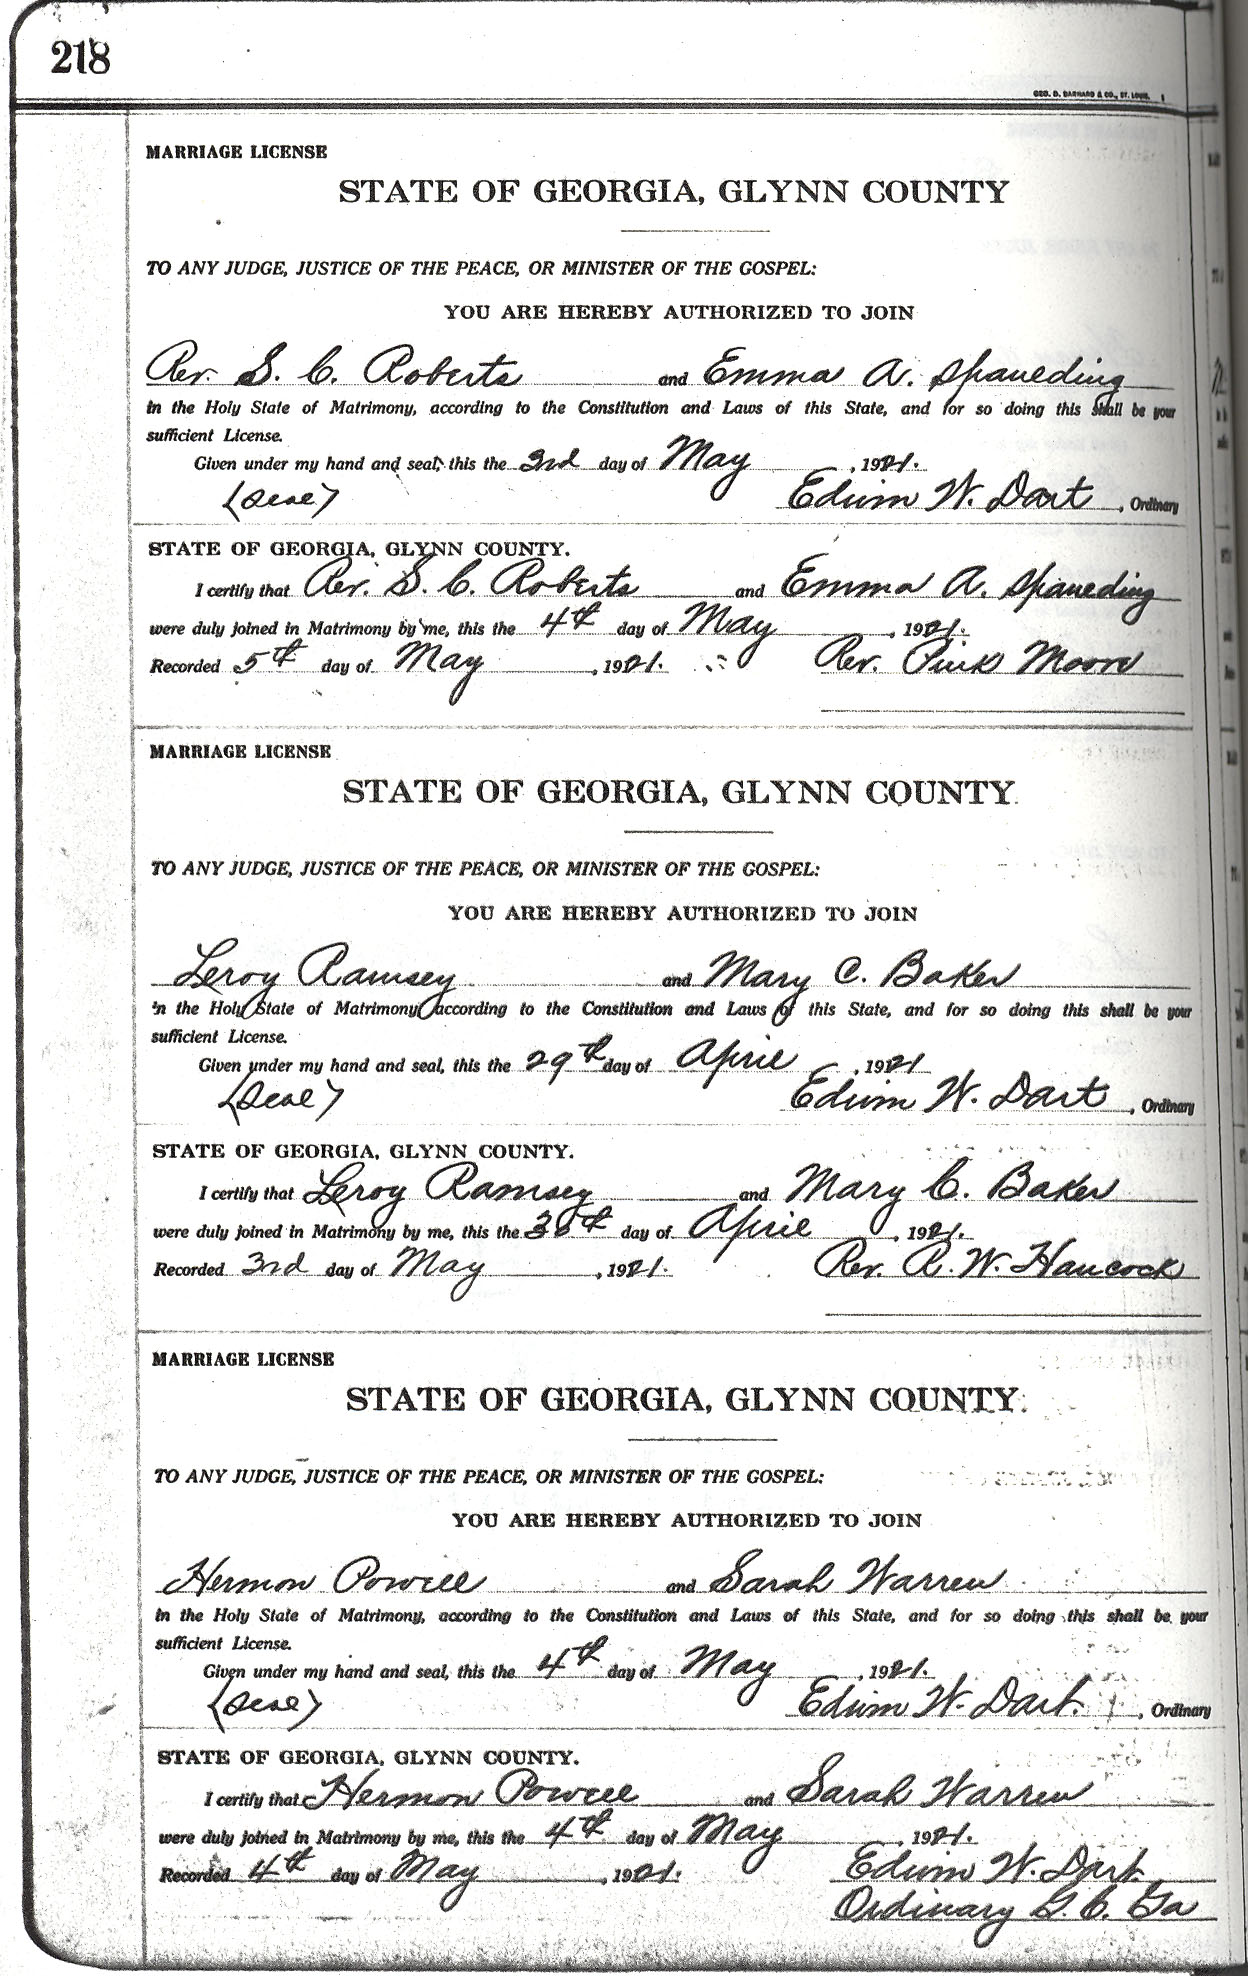 218
GEO. D. BARNARD & CO., ST. LOUIS.
MARRIAGE LICENSE
STATE OF GEORGIA, GLYNN COUNTY
TO ANY JUDGE, JUSTICE OF THE PEACE, OR MINISTER OF THE GOSPEL:
YOU ARE HEREBY AUTHORIZED TO JOIN
Rev. S. C. Roberts and Emma A. Spaulding
in the Holy State of Matrimony, according to the Constitution and Laws of this State, and for so doing this shall be your
sufficient License.
Given under my hand and seal, this the 3rd day of May, 1921.
(Seal) Edwin W. Dart, Ordinary
STATE OF GEORGIA, GLYNN COUNTY.
I certify that Rev. S. C. Roberts and Emma A. Spaulding
were duly joined in Matrimony by me, this the 4th day of May, 1921.
Recorded 5th day of May, 1921. Rev. Pink Moore
MARRIAGE LICENSE
STATE OF GEORGIA, GLYNN COUNTY.
TO ANY JUDGE, JUSTICE OF THE PEACE, OR MINISTER OF THE GOSPEL:
YOU ARE HEREBY AUTHORIZED TO JOIN
Leroy Ramsey and Mary C. Baker
in the Holy State of Matrimony, according to the Constitution and Laws of this State, and for so doing this shall be your
sufficient License.
Given under my hand and seal, this the 29th day of April, 1921
(Seal) Edwin W. Dart, Ordinary
STATE OF GEORGIA, GLYNN COUNTY.
I certify that Leroy Ramsey and Mary C. Baker
were duly joined in Matrimony by me, this the 30th day of April, 1921.
Recorded 3rd day of May, 1921. Rev. R. W. Hancock
MARRIAGE LICENSE
STATE OF GEORGIA, GLYNN COUNTY.
TO ANY JUDGE, JUSTICE OF THE PEACE, OR MINISTER OF THE GOSPEL:
YOU ARE HEREBY AUTHORIZED TO JOIN
Hermon Powell and Sarah Warren
in the Holy State of Matrimony, according to the Constitution and Laws of this State, and for so doing this shall be your
sufficient License.
Given under my hand and seal, this the 4th day of May, 1921.
(Seal) Edwin W. Dart, Ordinary
STATE OF GEORGIA, GLYNN COUNTY.
I certify that Hermon Powell and Sarah Warren
were duly joined in Matrimony by me, this the 4th day of May, 1921.
Recorded 4th day of May, 1921. Edwin W. Dart
Ordinary G. C. Ga